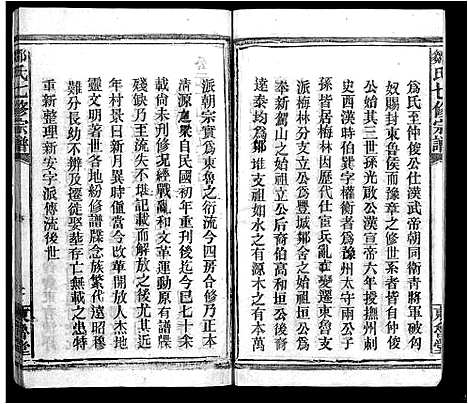 鄒氏七修宗譜
為氏至仲俊公仕漢武帝朝同衛青將軍破匈
奴賜封東魯侯而謂東魯之修世系者皆自侯
公始其三世孫光啟公漢宣帝六年授撫州刺
史西漢時伯巽字權者橫公為豫州太守兩公子
孫皆居梅林因歷代仕宦兵亂在變遷東魯由
梅林分居各地豐城鄒舍之始祖垣公臨川
奉新駕山之始祖立公后裔伯禹和垣公后裔
遠泰均為鄒
水之有源木之有本萬
派朝宗實為東魯之衍流今四房合修乃正本
清源之舉自民國初年重刊後迄今已七十餘
載尚未刊修況經戰亂和文革運動原有譜牒
殘缺乃至流失不堪記載而解放之後尤其近
年村景日新月異時值改革開放人杰地
靈文明著世各地紛修譜牒念族繁代遠昭穆
難分長幼不辨及遷徙娶葬存亡無載之患
重新整理新安字派傳流後世
鄒氏七修宗譜
東魯堂
東魯堂